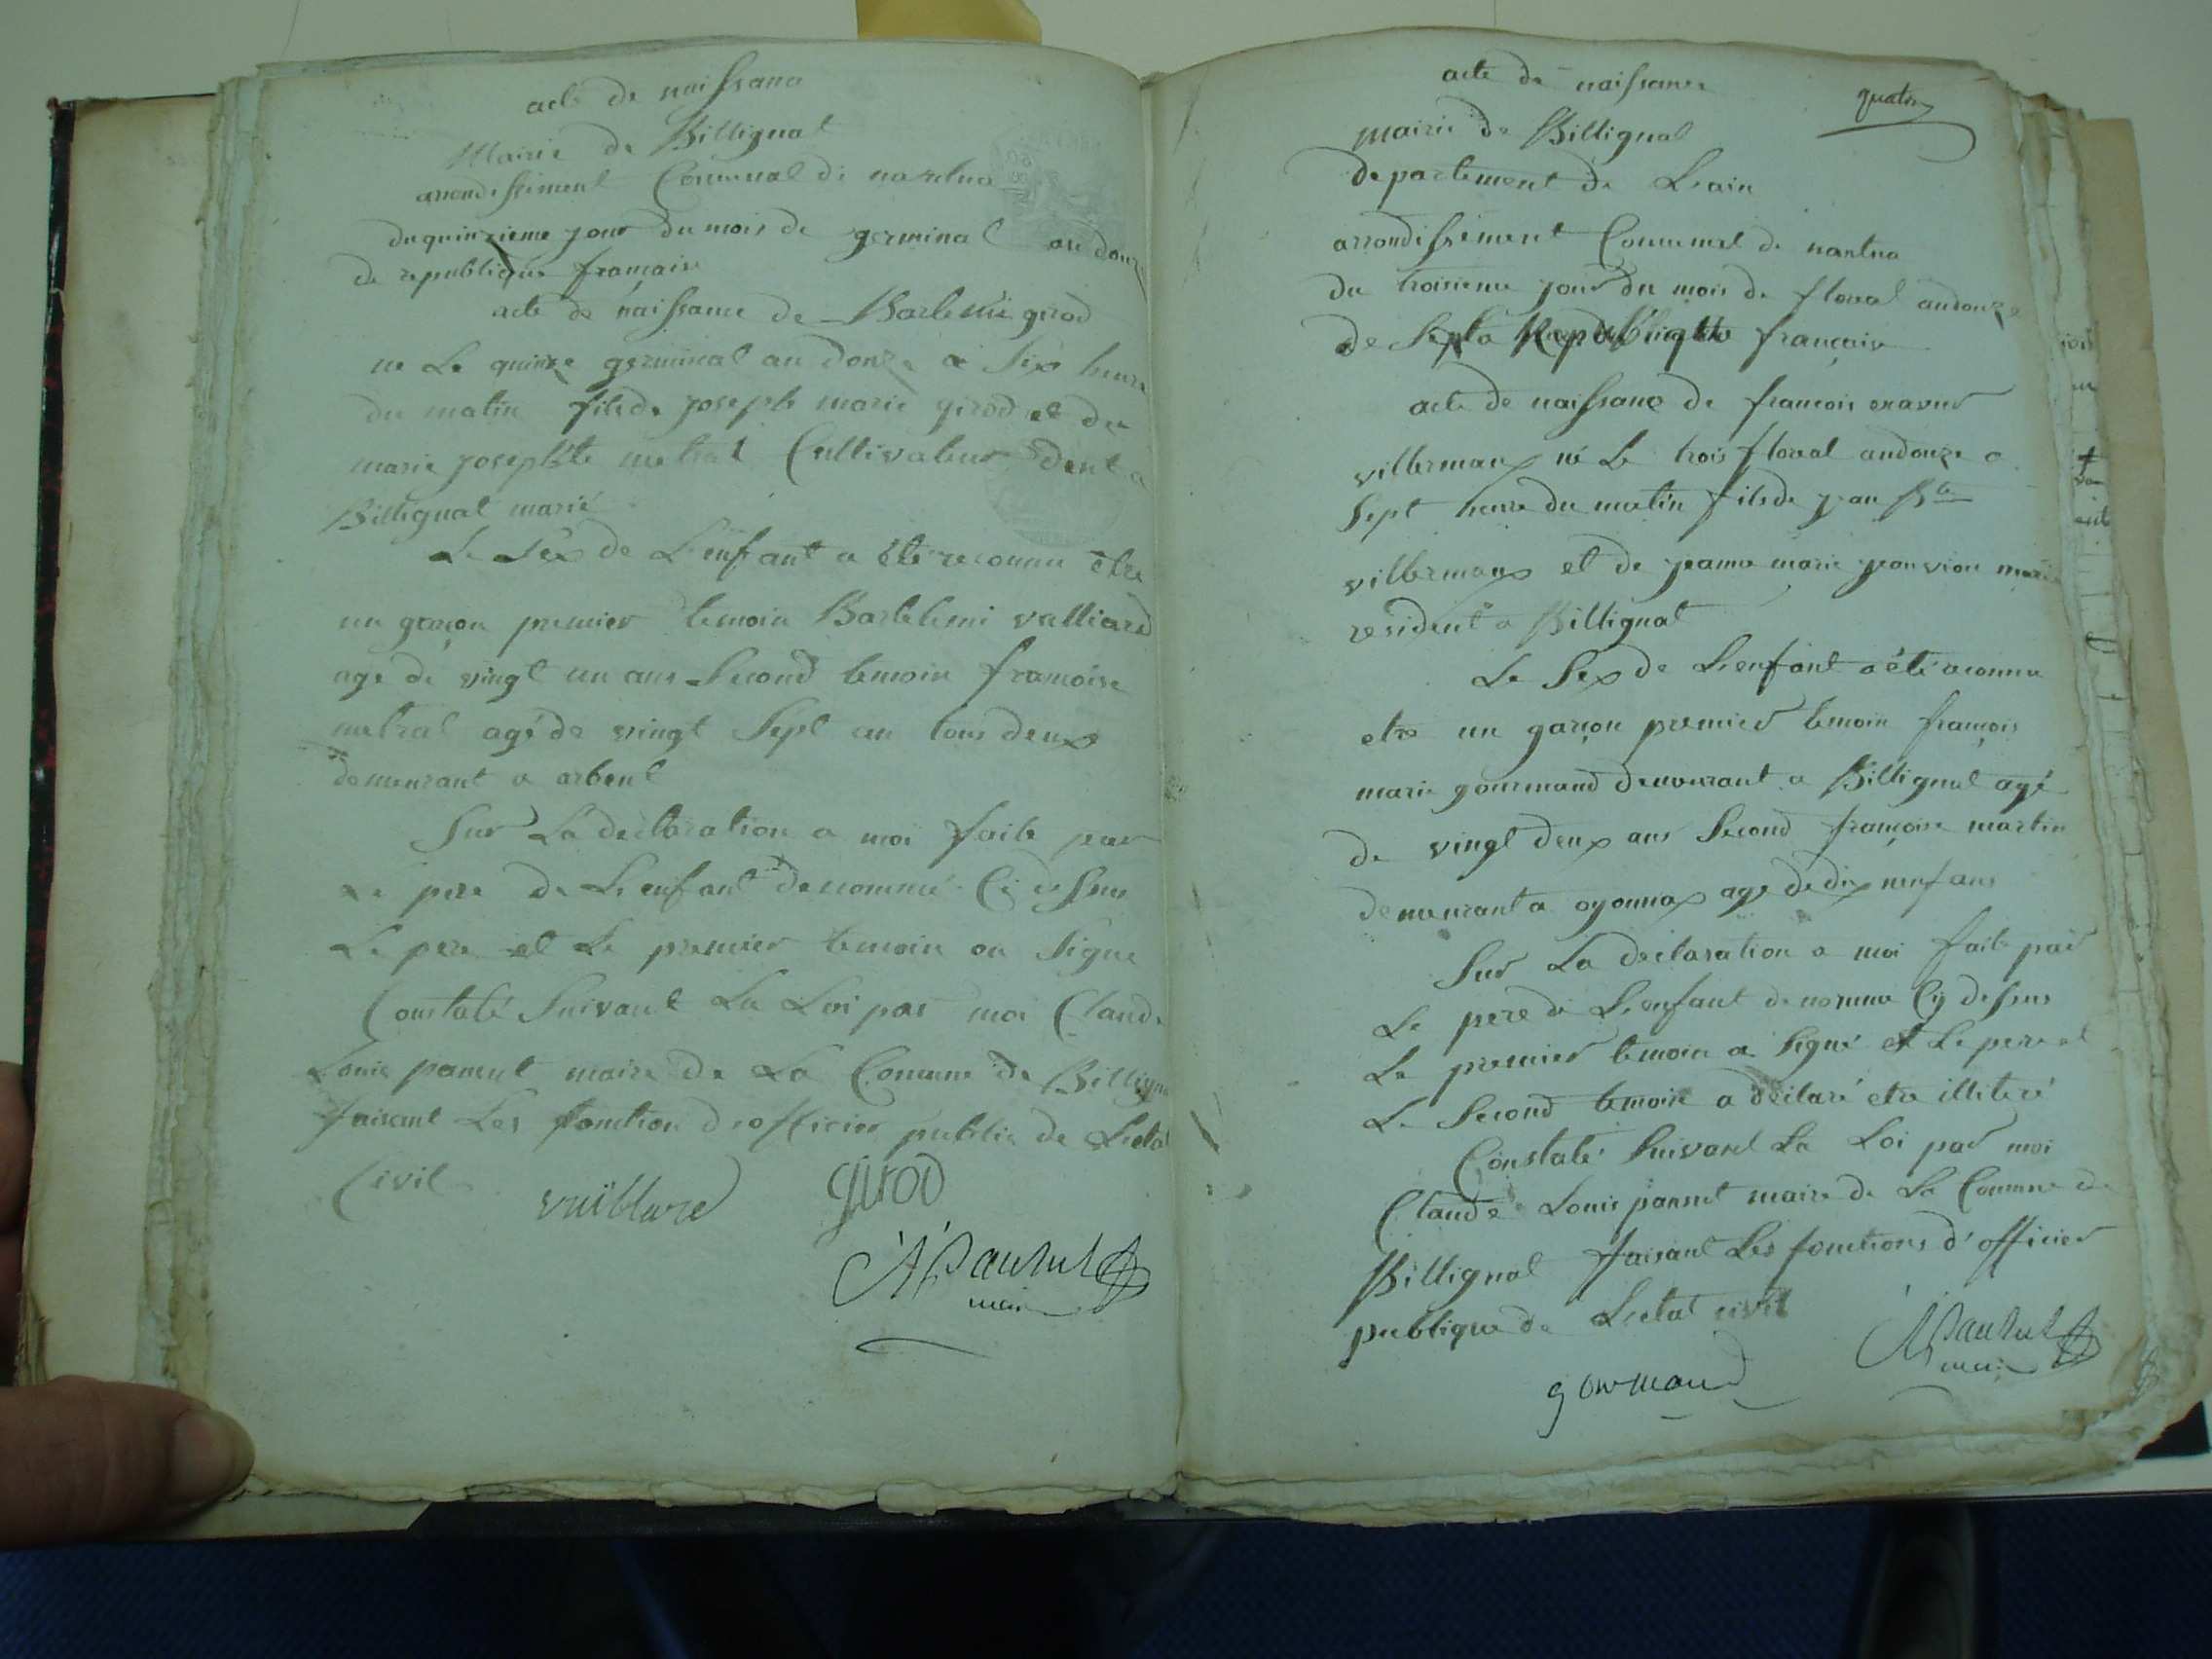 acte de naissance
Mairie de Billignat
arrondissement Communal de nantua
du quinzieme jour du mois de germinal an douze
de republique francaise
acte de naissance de Barlemi girod
né Le quinze germinal an donze a Six heure
du matin fils de joseph marie girod et de
marie josephte metral Cultivateur dent a
Billignat marié
Le Sex de L'enfant a été reconnu etre
un garçon premier temoin Bartelemi valliard
agé de vingt un ans Second temoin francoise
metral agé de vingt Sept an tous deux
demeurant a arbent
Sur La declaration a moi faite par
Le pere de L'enfant denommé Ci dessus
Le pere et Le premier temoin on Signe
Constaté Suivant La Loi par moi Claude
Louis pansut maire de La Comune de Billignat
faisant Les fonction d'officier public de Letat
Civil
vuillard
girod
Pansut
maire
quatre
acte de naissance
mairie de Billignat
departement de Lain
arrondissement Communal de nantua
du troisieme jour du mois de floreal an donze
de francaise
acte de naissance de francois exavier
villermaux né Le trois floreal an donze a
Sept heure du matin fils de jean Bte
villermaux et de jeanne marie jeanvion marié
resident a Billignat
Le Sex de L'enfant a été reconnu
etre un garçon premier temoin françois
marie gourmand demeurant a Billignat agé
de vingt deux ans Second françoise martin
demeurant a oyonnax agé de dix neuf ans
Sur La declaration a moi faite par
Le pere de L'enfant denommé Cy dessus
Le premier temoin a Signé et Le pere et
Le Second temoin a déclaré etre illiteré
Constaté Suivant La Loi par moi
Claude Louis pansut maire de La Commune de
Billignat faisant Les fonctions d'officier
publique de Letat civil
Pansut
maire
gourmand